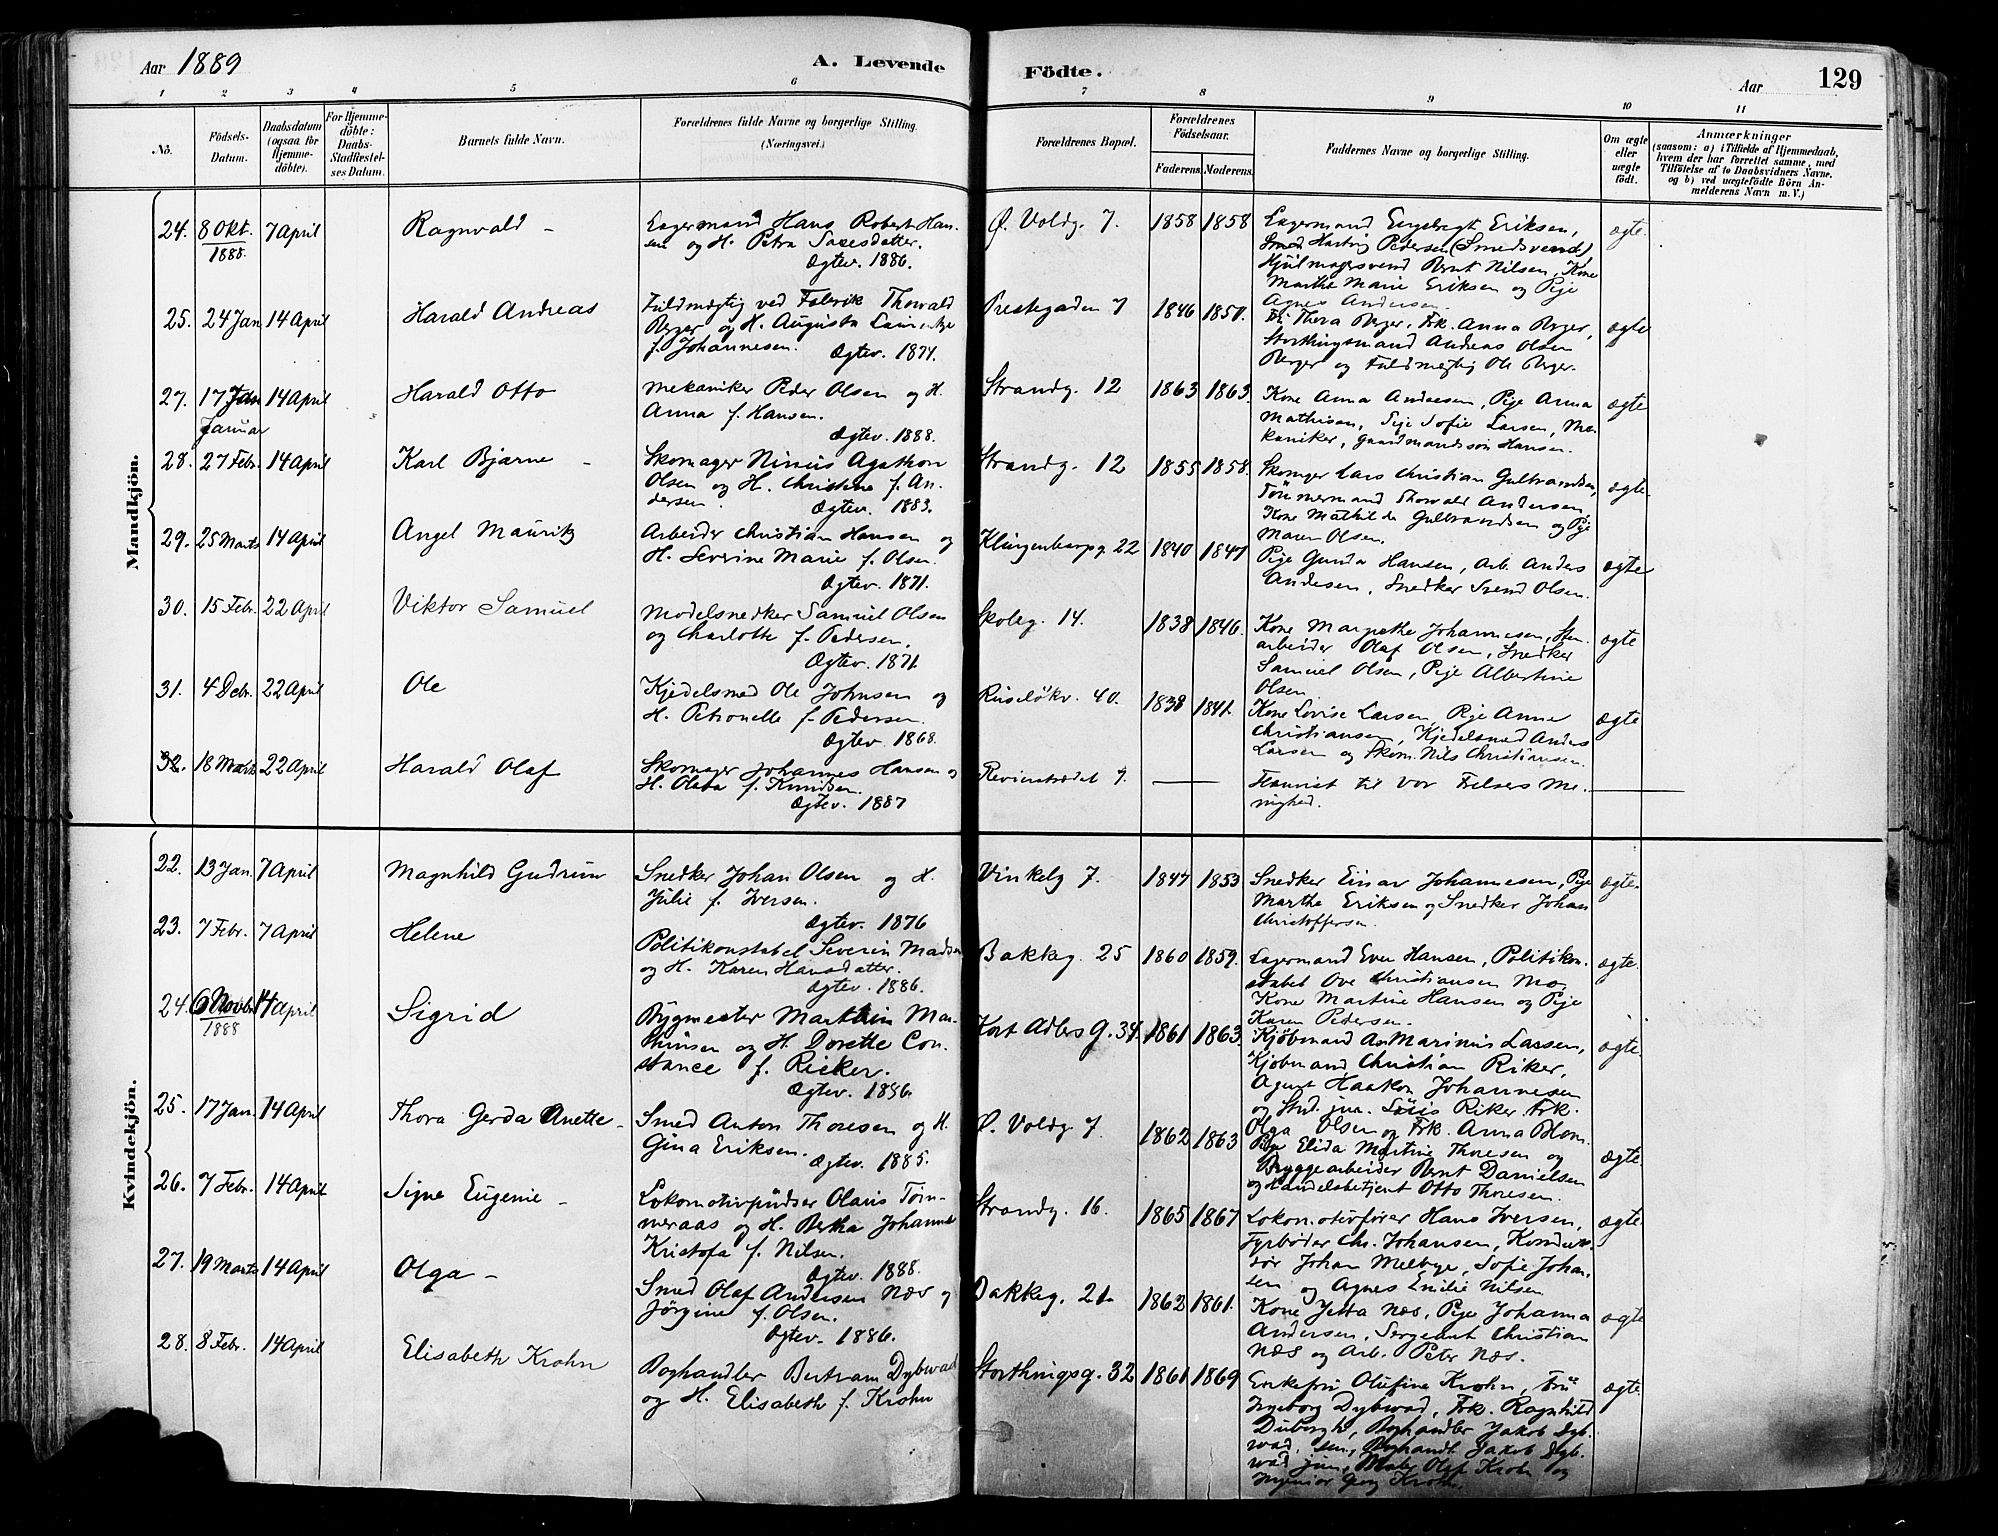 Aar 1889
A. Levende Födte.
Aar 129
1 2 3 4 5 6 7 8 9 10 11
No.
Födsels-Datum.
Daabsdatum (ogsaa for Hjemme-döbte).
For Hjemme-döbte: Daabs-Stadfæstel-ses Datum.
Barnets fulde Navn.
Forældrenes fulde Navne og borgerlige Stilling.
(Næringsvei.)
Forældrenes Bopæl.
Forældrenes Födselsaar.
Faderens. Moderens.
Faddernes Navne og borgerlige Stilling.
Om ægte eller uægte födt.
Anmærkninger
(saasom: a) i Tilfælde af Hjemmedaab,
hvem der har forrettet samme, med
Tilföielse af to Daabsvidners Navne.
og b) ved uægtefödte Börn An-
melderens Navn m. V.)
Mandkjön.
24. 8 Okt. 1888. 7 April Ragnvald –
Lagermand Hans Robert Han-
sen og H. Petra Saxesdatter.
Ægtev. 1886.
Ø. Voldg. 7. 1858 1858
Lagermand Engebregt Eriksen,
Smed Hartvig Pedersen (Smedsvend),
Hjulmagersvend Bernt Nilsen, Kone
Marthe Marie Eriksen og Pige
Agnes Andersen.
ægte.
25. 24 Jan 14 April Harald Andreas
Fuldmægtig ved Fabrik Thorvald
Berger og H. Augusta
f. Johannesen. Ægtev. 1871.
Prestegaden 7 1846 1851.
Frk. Thora Berger, Frk. Anna Berger,
Storthingsmand Andreas Olsen
Berger og Fuldmegtig Ole Berger.
ægte
27. 17 Jan Januar 14 April Harald Otto
Mekaniker Peder Olsen og H.
Anna f. Hansen.
Ægtev. 1888.
Strandg. 12 1863 1863.
Kone Anna Andresen, Pige Anna
Mathisen, Pige Sofie Larsen, Me-
kaniker, gaardmandssøn Hansen.
ægte
28. 27 Febr. 14 April Karl Bjarne –
Skomager Ninius Agathon
Olsen og H. Christine f. An-
dersen. Ægtev. 1883.
Strandg. 12 1855 1858.
Skomager Lars Christian Gulbrandsen,
Tömmermand Thorvald Andersen,
Kone Mathilde Gulbrandsen og Pige
Maren Olsen.
ægte.
29. 25 Marts 14 April Angel Mauritz
Arbeider Christian Hansen og
H. Severine Marie f. Olsen.
Ægtev. 1871.
Klingenbergg 22 1840 1847
Pige Gunda Hansen, Arb. Anders
Andersen, Snedker Svend Olsen.
ægte
30. 15 Febr. 22 April Viktor Samuel
Modelsnedker Samuel Olsen
og Charlotte f. Pedersen.
Ægtev. 1871
Skoleg. 14. 1838 1846.
Kone Margrethe Johannesen, Sten-
arbeider Olaf Olsen, Snedker
Samuel Olsen, Pige Albertine
Olsen.
ægte
31. 4 Debr. 22 April Ole
Kjedelsmed Ole Johnsen og
H. Petronelle f. Pedersen.
Ægtev. 1868.
Ruseløkv. 40. 1838 1841.
Kone Lovise Larsen, Pige Anna
Christiansen, Kjedelsmed Anders
Larsen og Skom. Nils Christiansen.
ægte
32. 18 Marts 22 April Harald Olaf
Skomager Johannes Hansen og
H. Olava f. Knudsen.
Ægtev. 1887
Revierstrædet 7.
Henvist til Vor Frelsers Me-
nighed.
Kvindekjön.
22. 13 Jan. 7 April Magnhild Gudrun
Snedker Johan Olsen og H.
Julie f. Iversen.
Ægtev. 1876
Vinkelg 7. 1847 1853
Snedker Einar Johannesen, Pige
Marthe Eriksen og Snedker Johan
Christoffersen.
ægte.
23. 7 Febr. 7 April Helene
Politikonstabel Severin Madsen
og H. Karen Hansdatter.
Ægtev. 1886.
Bakkeg. 25 1860 1859.
Lagermand Even Hansen, Politikon-
stabel Ove Christiansen Mo,
Kone Martine Hansen og Pige
Karen Pedersen.
ægte.
24. 6 Novbr 1888 14 April Sigrid
Bygmester Marthin Mar-
thinsen og H. Dorette Con-
stance f. Ricker.
Ægtev. 1886.
Kort Adlers G. 34. 1861 1863
Kjöbmand Marinius Larsen,
Kjöbmand Christian Riker,
Agent Haakon Johannesen
og Stud. jur. Louis Riker. Frk.
Olga Olsen og Frk. Anna Blom.
ægte.
25. 17 Jan. 14 April Thora Gerda Anette –
Smed Anton Thoresen og H.
Gina Eriksen. Ægtev. 1885.
Ø. Voldg 7. 1862 1863
Pige Elida Martine Thoresen og
Bryggearbeider Bernt Danielsen
og Handelsbetjent Otto Thoresen.
ægte
26. 7 Febr. 14 April Signe Eugenie –
Lokomotivpudser Olaus Töm-
meraas og H. Bertha Johanne
Kristofa f. Nilsen.
Ægtev. 1888.
Strandg. 16. 1865 1867
Lokomotivförer Hans Iversen,
Fyrböder Chr. Johansen, Konduk-
tör Johan Melbye, Sofie Johan-
sen og Agnes Emilie Nilsen
ægte
27. 19 Marts 14 April Olga –
Smed Olaf Andersen Næs og
Jörgine f. Olsen.
Ægtev. 1886.
Bakkeg. 21. 1862 1861.
Kone Jetta Næs, Pige Johanna
Andersen, Sergeant Christian
Næs og Arb. Peter Næs.
ægte
28. 8 Febr. 14 April Elisabeth Krohn
Boghandler Bertram Dybwad
og H. Elisabeth f. Krohn
Storthingsg. 32 1861 1869
Enkefru Olufine Krohn, Fru
Ingeborg Dybwad, Frk. Ragnhild
Duborgh, Boghandler Jakob Dyb-
wad, sen., Boghandl. Jakob Dyb-
wad jun., Maler Olaf Krohn og
Ingeniör Georg Krohn.
ægte